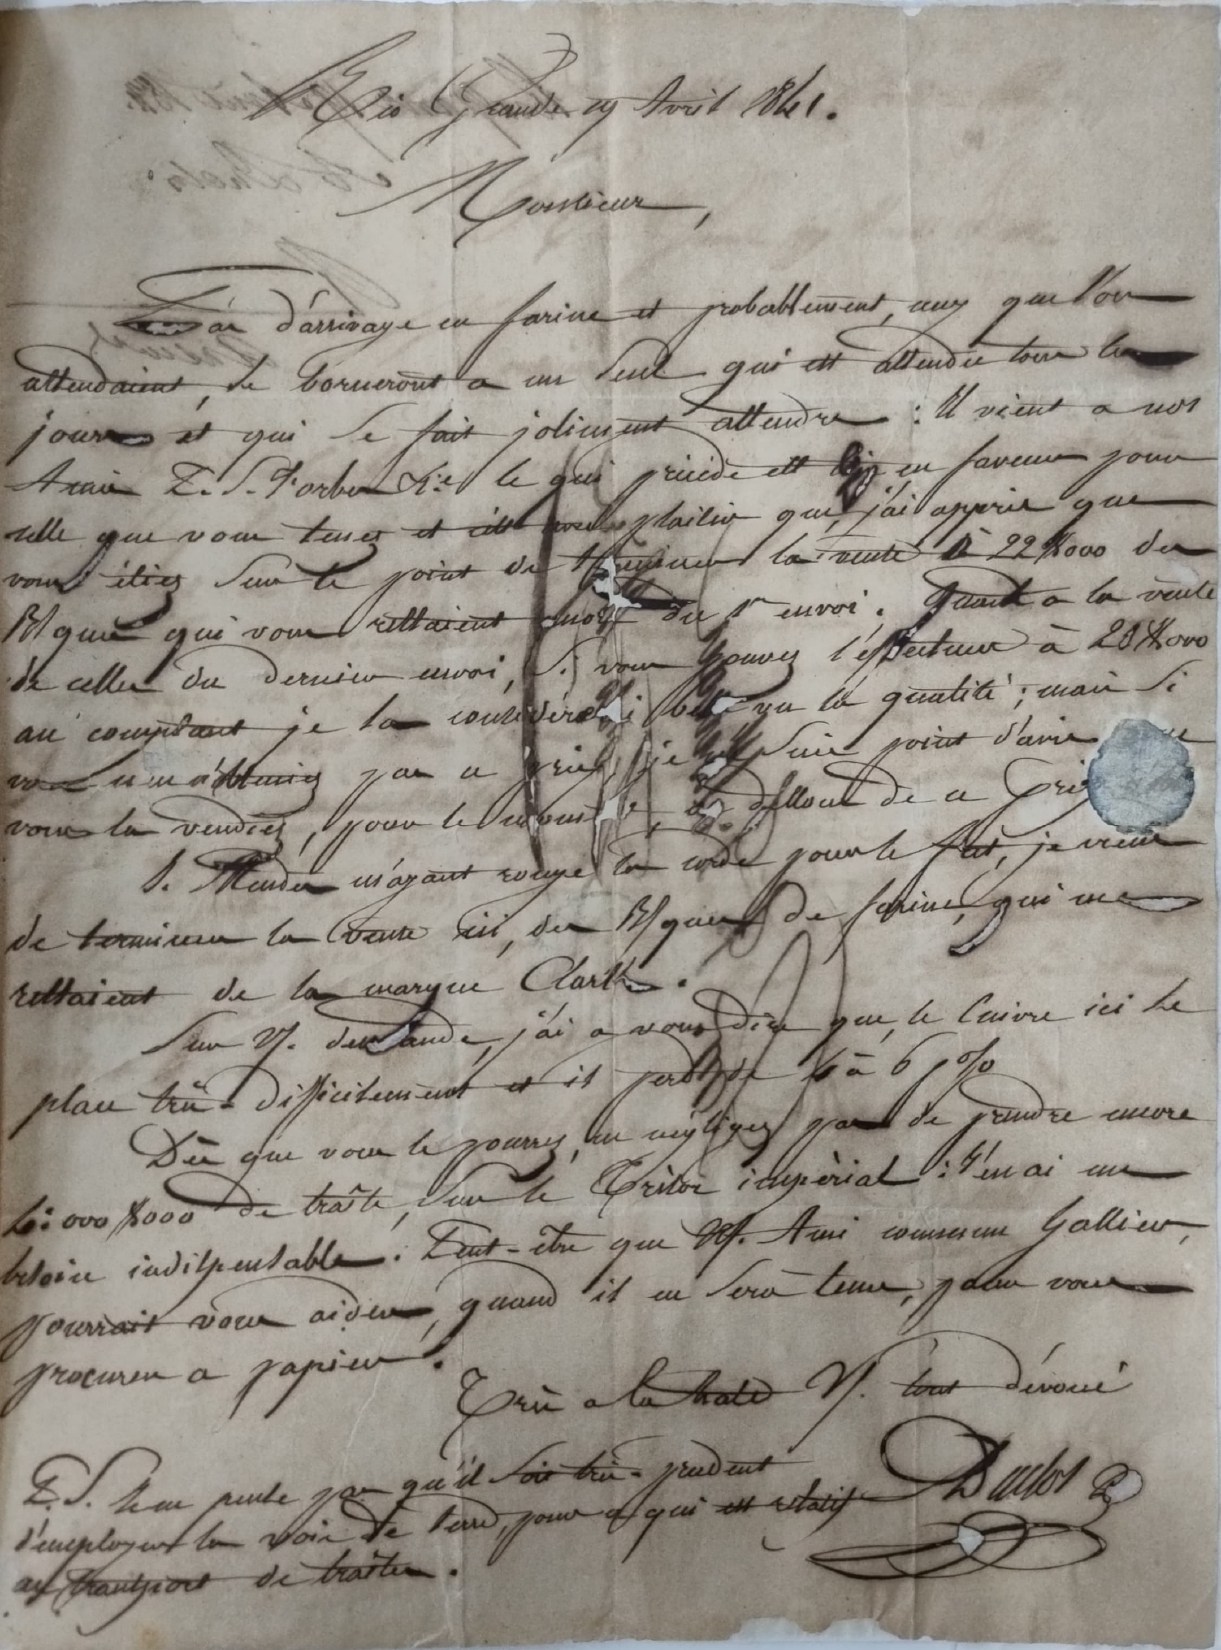 Rio Grande 19 Avril 1841.
Monsieur,
Pas d'arrivage en farine et probablement, ceux que l'on
attendaient, se borneront a un seul qui est attendu tous les
jours et qui se fait joliment attendre : Il vient a nos
Amis F. S. Forbes & Cie le qui précède est en faveur pour
celle que vous tenez et c'est avec plaisir que j'ai appris que
vous étiez sur le point de terminer la vente à 22$000 des
Bques qui vous restaient du 1er envoi. Quant a la vente
de celles du dernier envoi, si vous pouvez l'effectuer à 20$000
au comptant je la considère vu la qualité ; mais si
vous n'en obteniez pas ce prix, je ne suis point d'avis que
vous la vendiez, pour le moment, au dessous de ce prix
S. Mendes m'ayant coupé la corde pour le fret, je viens
de terminer la vente ici, des Bques de farine, qui me
restaient de la marque Clark.
Sur V. demande, j'ai a vous dire que, le Cuivre ici se
place très difficilement et il perd de 4 à 6 p%
Dès que vous le pourrez, ne négligez pas de prendre encore
000$000 de traîte, sur le Trésor impérial : J'en ai un
besoin indispensable. Peut-être que N. Ami commun Gallien,
pourrait vous aider, quand il en sera tems, pour vous
procurer ce papier.
Très a la hate V. tout dévoué
Duclos
P.S. Je ne pense pas qu'il soit très prudent
d'employer la voie de terre, pour ce qui est relatif
au transport de traîtes.